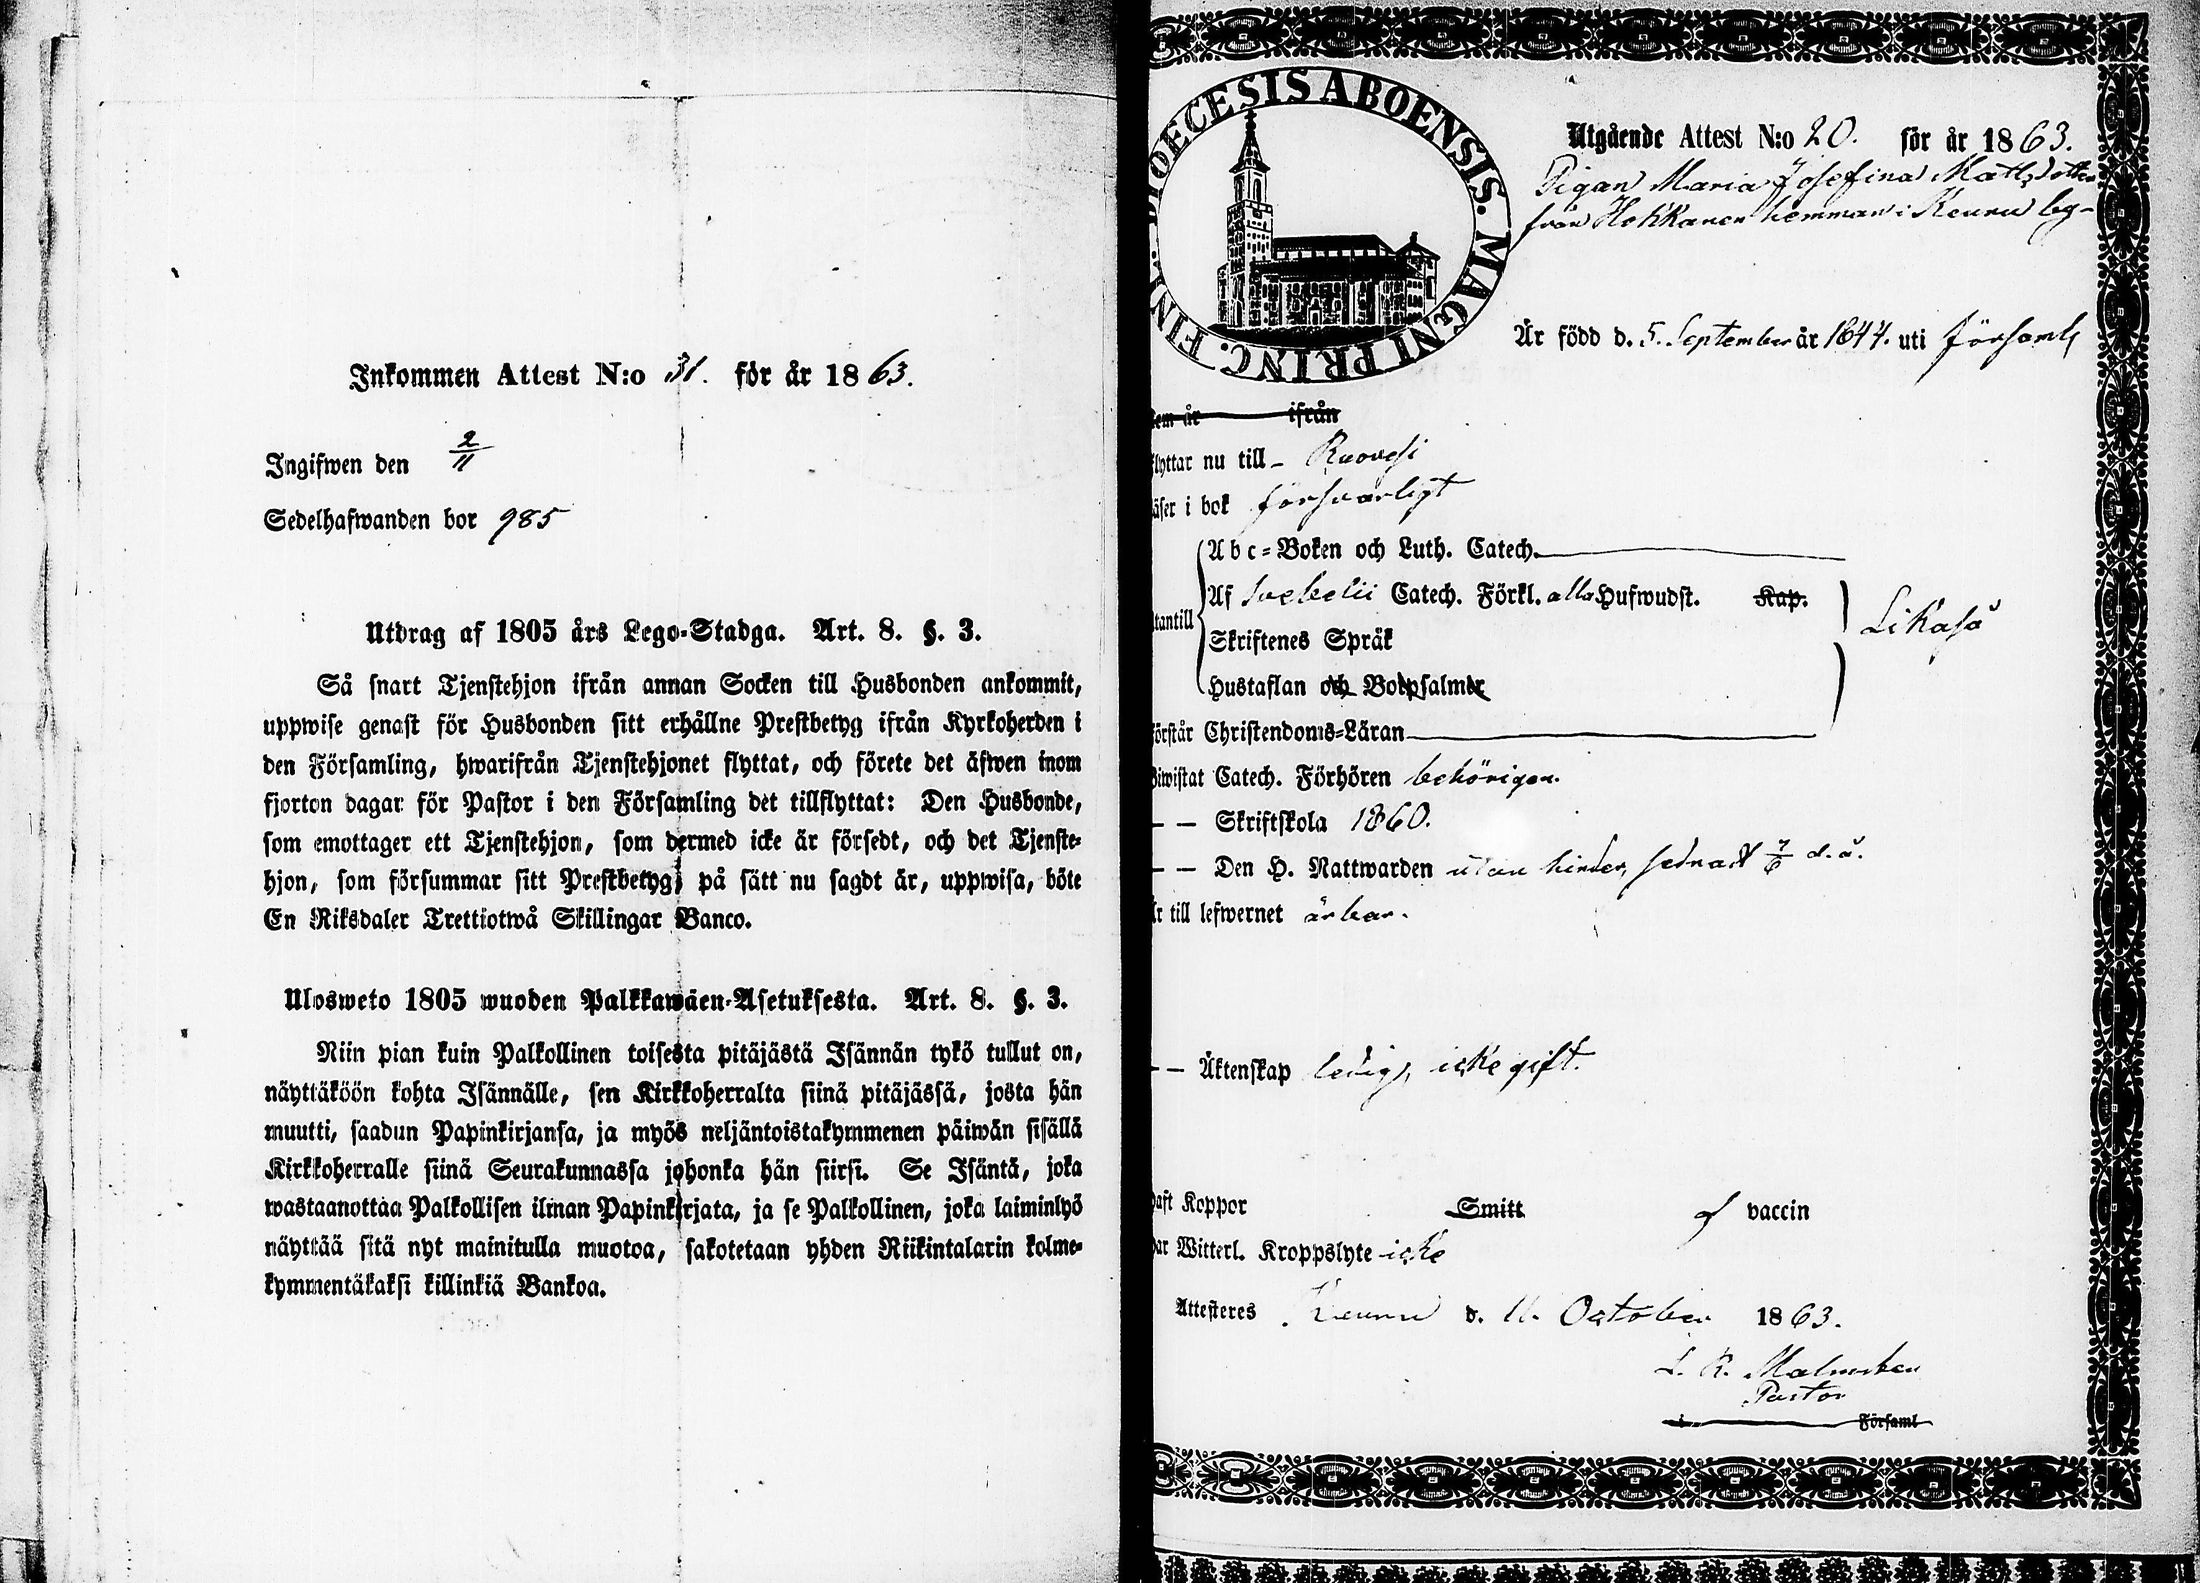 Inkommen Attest N:o 31. för år 1863.
Ingifwen den 2/11
Sedelhafwanden bor 985
Utdrag af 1805 års Lego-Stadga. Art. 8. §. 3.
Så snart Tjenstehjon ifrån annan Socken till Husbonden ankommit,
uppwise genast för Husbonden sitt erhållne Prestbetyg ifrån Kyrkoherden i
den Församling, hwarifrån Tjenstehjonet flyttat, och förete det äfwen inom
fjorton dagar för Pastor i den Församling det tillflyttat: Den Husbonde,
som emottager ett Tjenstehjon, som dermed icke är försedt, och det Tjenste-
hjon, som försummar sitt Prestbetyg, på sätt nu sagdt är, uppwisa, böte
En Riksdaler Trettiotwå Skillingar Banco.
Ulosweto 1805 wuoden Palkkawäen-Asetuksesta. Art. 8. §. 3.
Niin pian kuin Palkollinen toisesta pitäjästä Isännän tykö tullut on,
näyttäköön kohta Isännälle, sen Kirkkoherralta siinä pitäjässä, josta hän
muutti, saadun Papinkirjansa, ja myös neljäntoistakymmenen päiwän sisällä
Kirkkoherralle siinä Seurakunnassa johonka hän siirsi. Se Isäntä, joka
wastaanottaa Palkollisen ilman Papinkirjata, ja se Palkollinen, joka laiminlyö
näyttää sitä nyt mainitulla muotoa, sakotetaan yhden Riikintalarin kolme-
kymmentäkaksi killinkiä Bankoa.
DIOECESIS ABOENSIS. MAGNI PRINC. FINL.
Utgående Attest N:o 20. för år 1863.
Pigan Maria Josefina Mattsdotter
från Hokkanen hemman i Keuru by-
Är född d. 5. September år 1844. uti församl
em år ifrån
lyttar nu till - Ruovesi
äser i bok försvarligt
Abc-Boken och Luth. Catech.
Af Svebelii Catech. Förkl. alla Hufwudst. Kap.
tantill Likaså
Skriftenes Språk
Hustaflan och Botpsalmer
örstår Christendoms-Läran
iwistat Catech. Förhören behörigen.
— — Skriftskola 1860.
— — Den H. Nattwarden utan hinder, sednast 7/6 d. å.
r till lefwernet ärbar.
— — Äktenskap ledig, icke gift.
aft Koppor Smitt af vaccin
ar Witterl. Kroppslyte icke
Attesteres Keuru d. 11. October 1863.
Pastor
i Församl